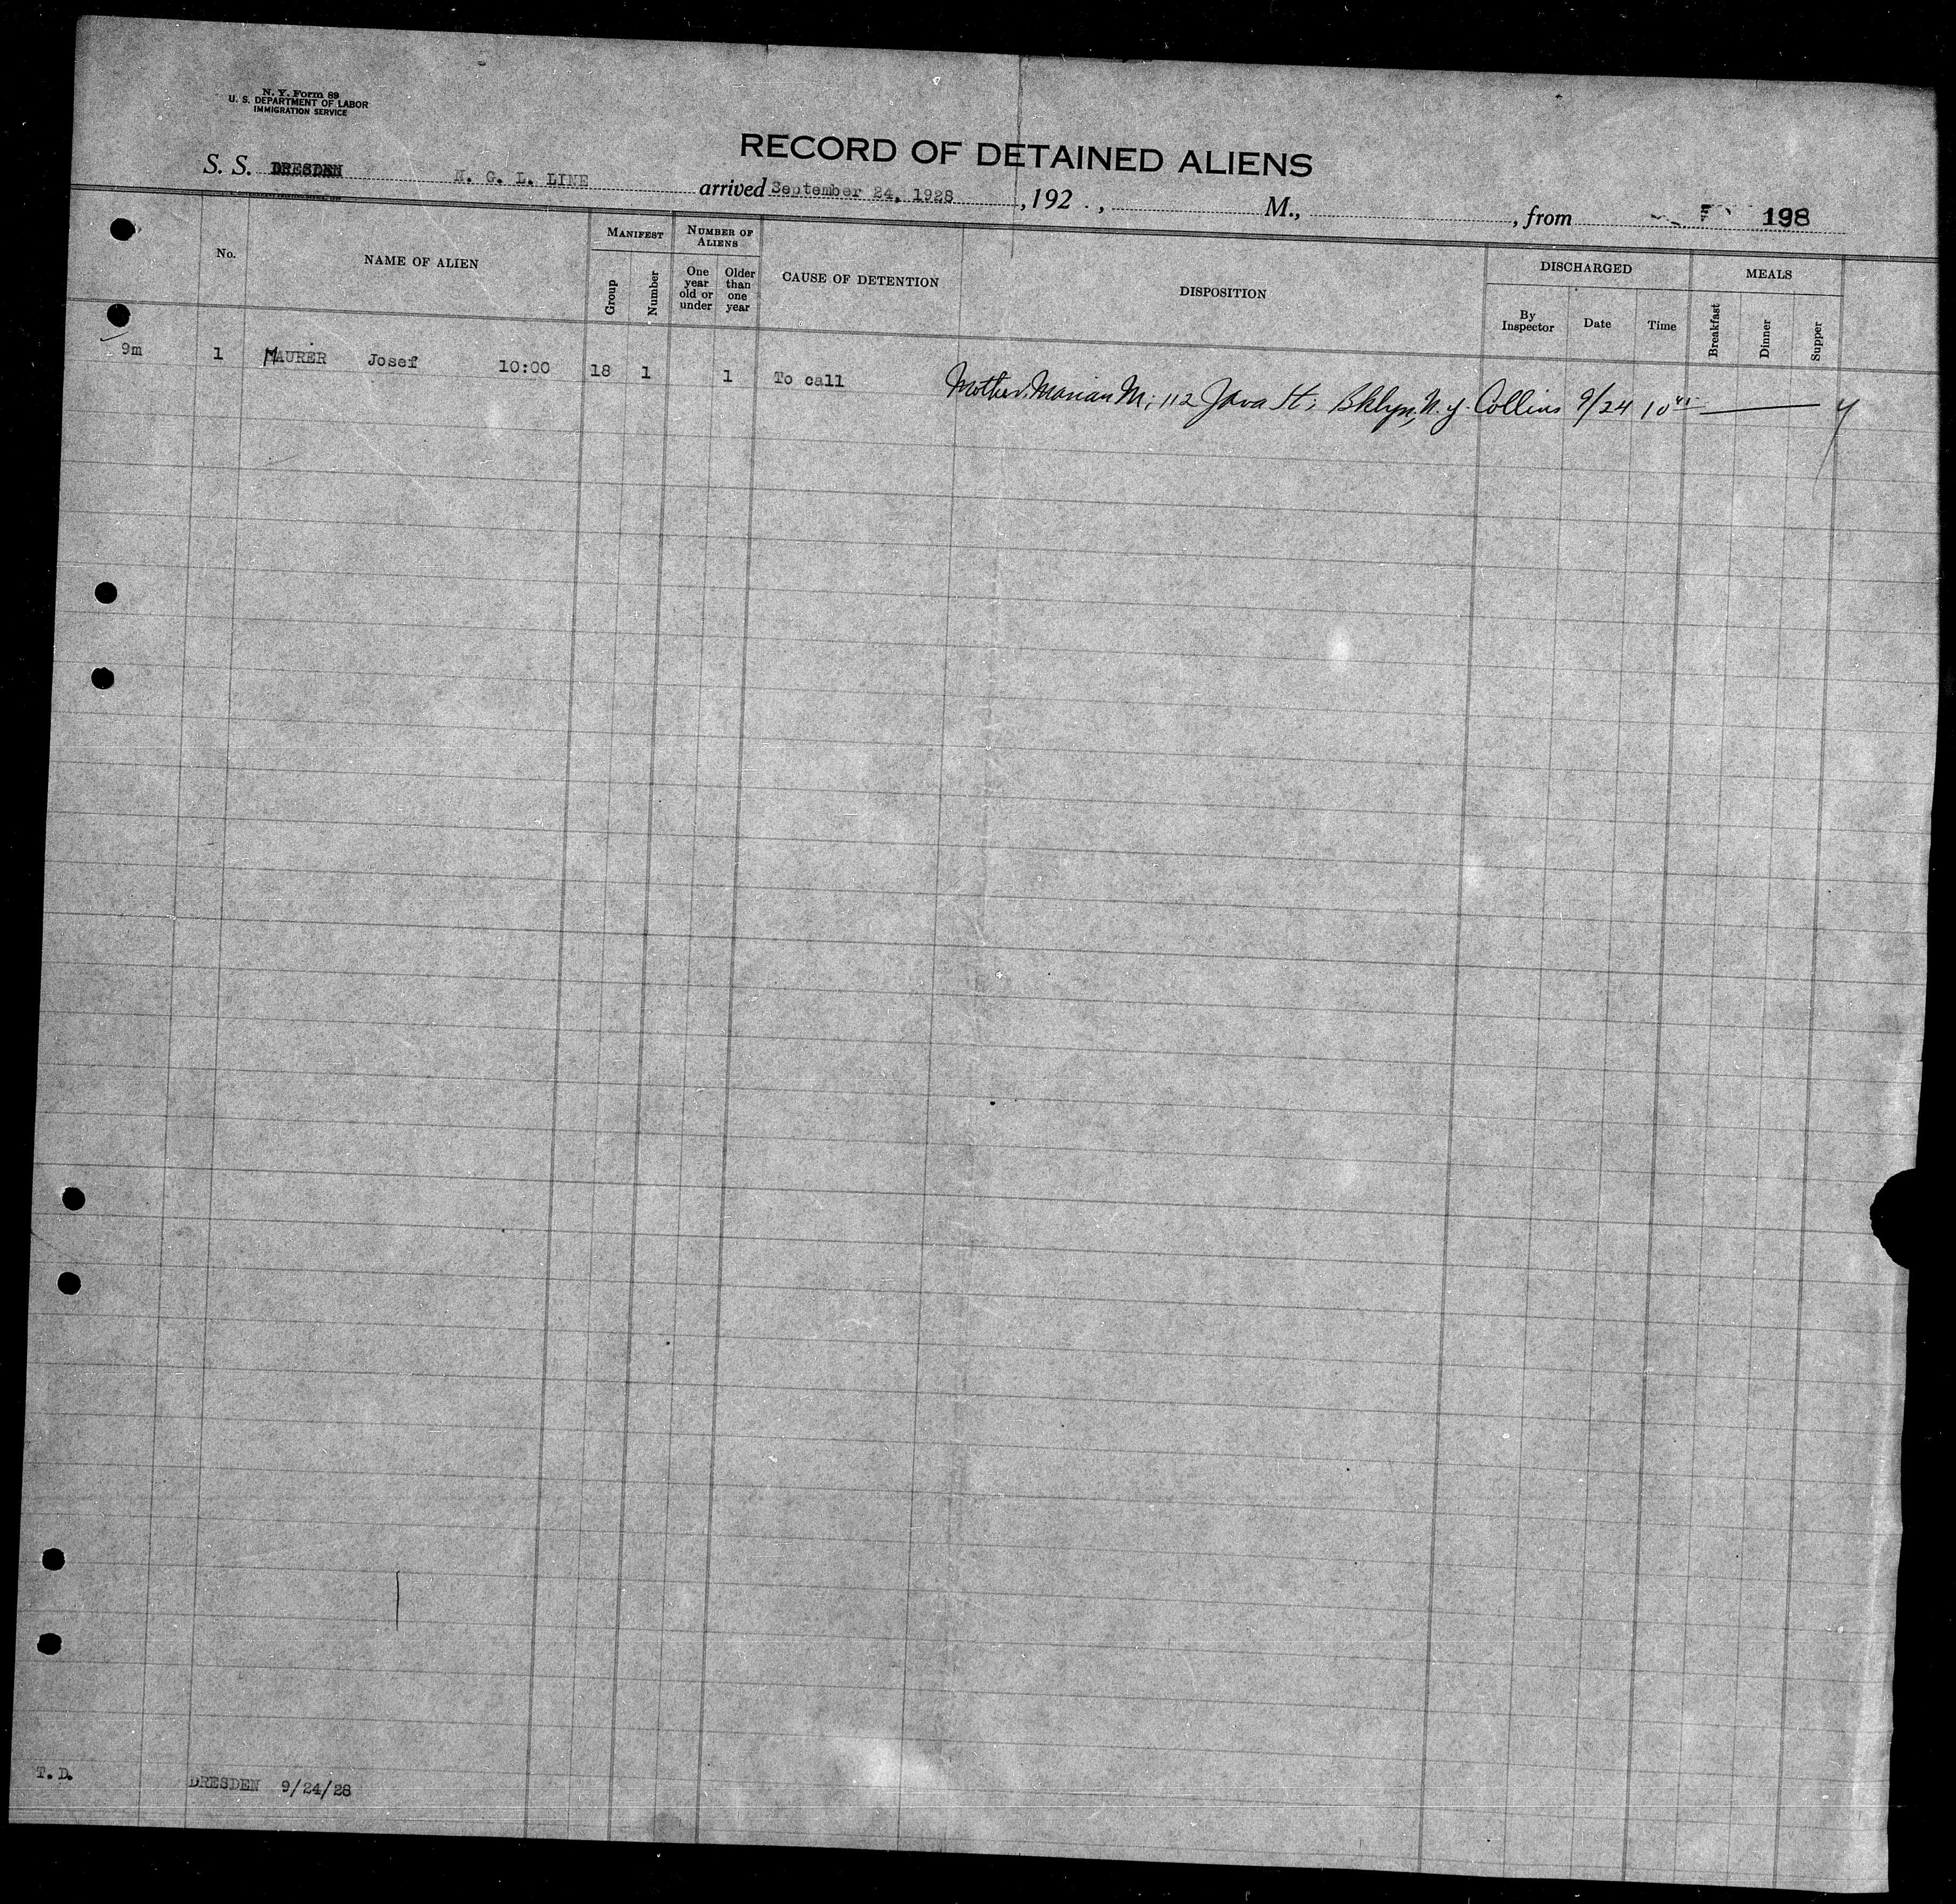 N. Y. Form 89
U. S. DEPARTMENT OF LABOR
IMMIGRATION SERVICE
RECORD OF DETAINED ALIENS
S. S. DRESDEN N. G. L. LINE arrived September 24, 1928, 192 . , M., , from 198
No.
NAME OF ALIEN
MANIFEST
Group
Number
NUMBER OF ALIENS
One year old or under
Older than one year
CAUSE OF DETENTION
DISPOSITION
DISCHARGED
By Inspector
Date
Time
MEALS
Breakfast
Dinner
Supper
9m 1 MAURER Josef 10:00 18 1 1 To call Mother, Marian M; 112 Java St; Bklyn, N.y. Collins 9/24 10 45
T. D. DRESDEN 9/24/28